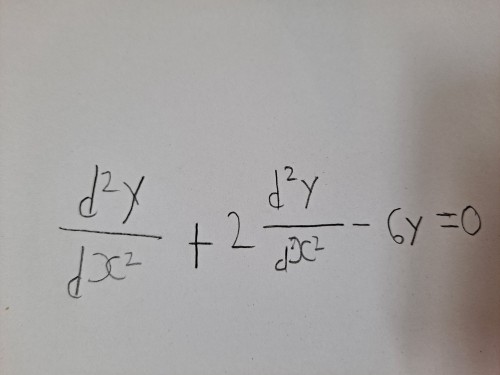 d²y/dx² + 2 d²y/dx² - 6y = 0